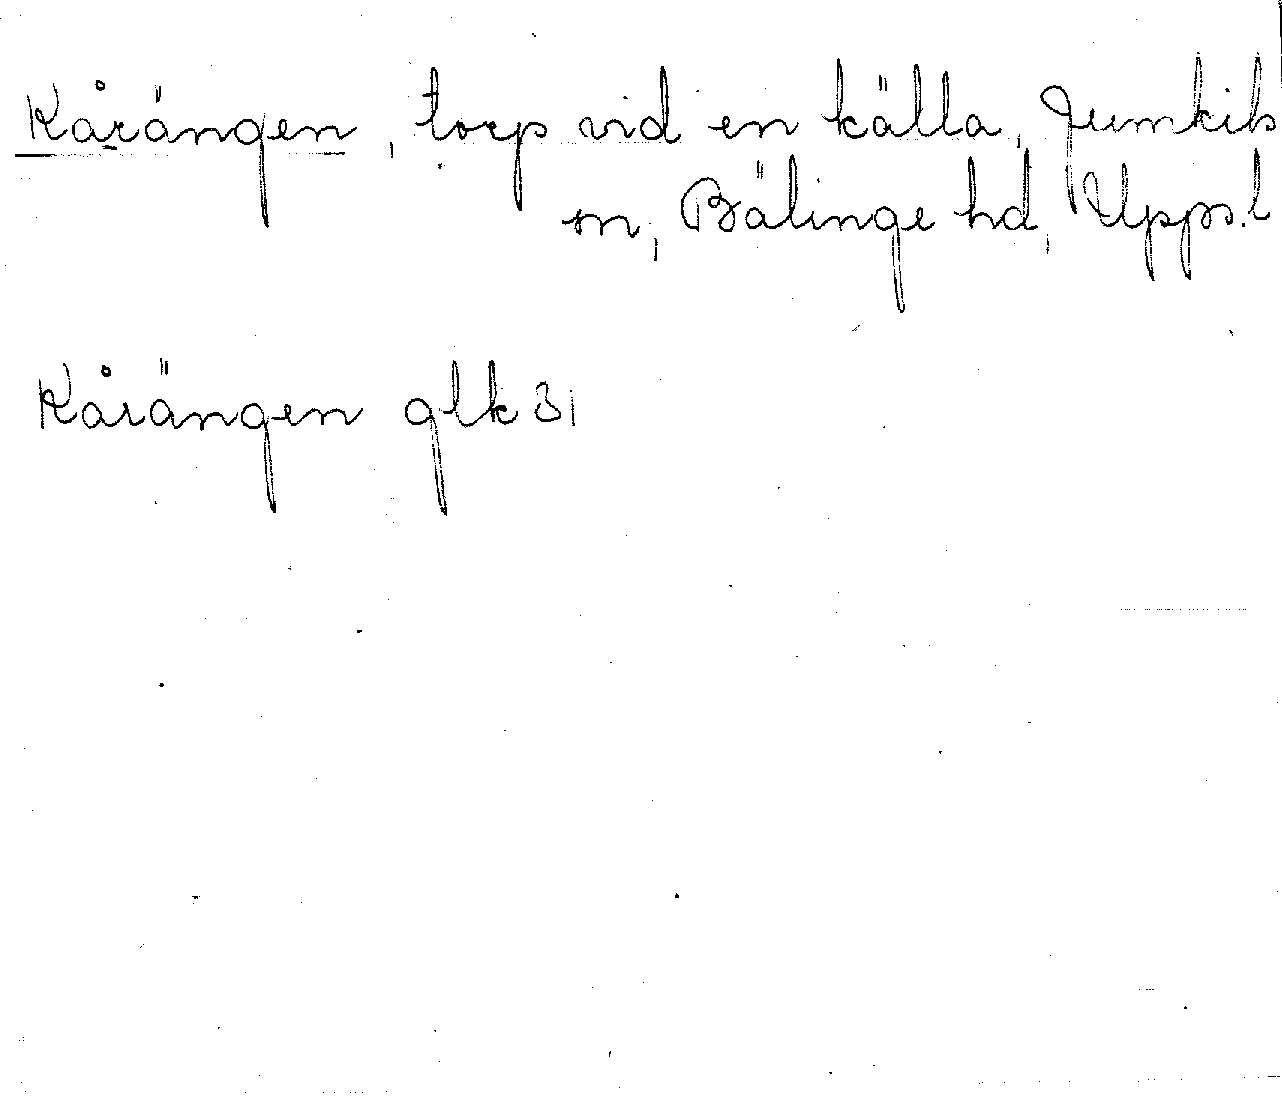 Kårängen, torp vid en källa, Jumkils
sn, Bälinge hd, Upps. l
Kårängen glk 31